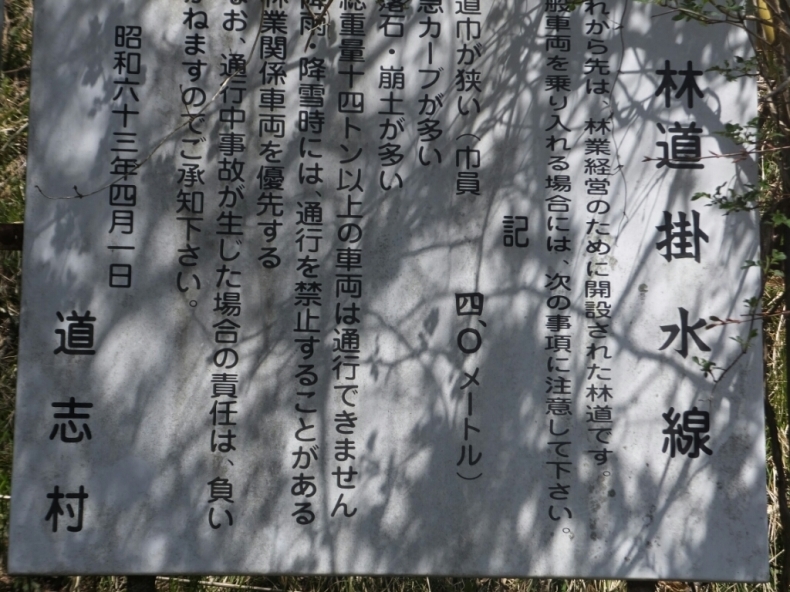 林道掛水線
れから先は、林業経営のために開設された林道です。
般車両を乗り入れる場合には、次の事項に注意して下さい。
記
道巾が狭い（巾員 四、〇メートル）
急カーブが多い
落石・崩土が多い
総重量十四トン以上の車両は通行できません
降雨・降雪時には、通行を禁止することがある
林業関係車両を優先する
なお、通行中事故が生じた場合の責任は、負い
かねますのでご承知下さい。
昭和六十三年四月一日
道志村